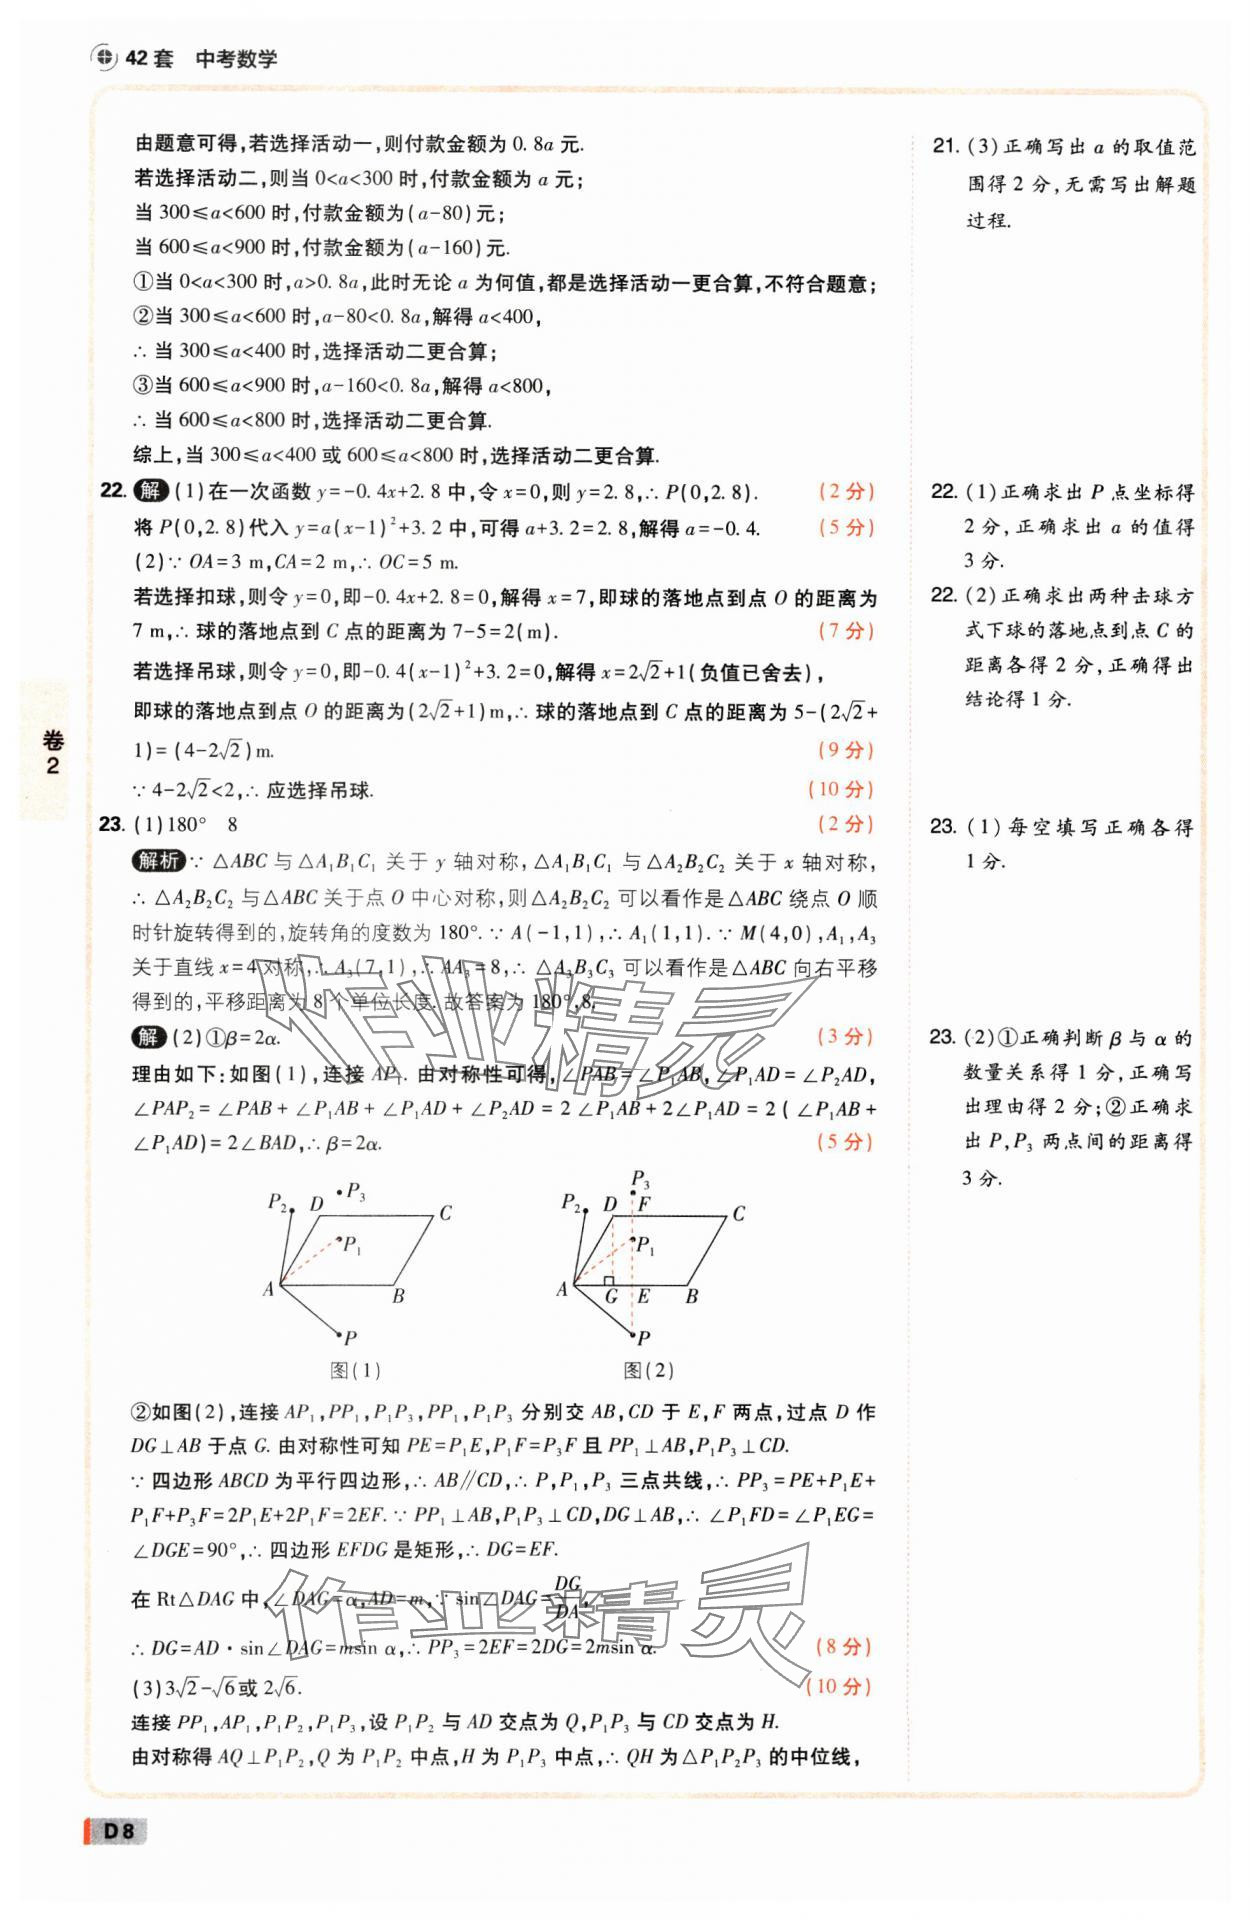 42 套 中考数学
由题意可得,若选择活动一,则付款金额为 0.8a 元.
若选择活动二,则当 0<a<300 时,付款金额为 a 元;
当 300≤a<600 时,付款金额为(a-80)元;
当 600≤a<900 时,付款金额为(a-160)元.
①当 0<a<300 时,a>0.8a,此时无论 a 为何值,都是选择活动一更合算,不符合题意;
②当 300≤a<600 时,a-80<0.8a,解得 a<400,
∴ 当 300≤a<400 时,选择活动二更合算;
③当 600≤a<900 时,a-160<0.8a,解得 a<800,
∴ 当 600≤a<800 时,选择活动二更合算.
综上,当 300≤a<400 或 600≤a<800 时,选择活动二更合算.
22. 解 (1)在一次函数 y=-0.4x+2.8 中,令 x=0,则 y=2.8,∴ P(0,2.8). (2 分)
将 P(0,2.8)代入 y=a(x-1)²+3.2 中,可得 a+3.2=2.8,解得 a=-0.4. (5 分)
(2)∵ OA=3 m,CA=2 m,∴ OC=5 m.
若选择扣球,则令 y=0,即-0.4x+2.8=0,解得 x=7,即球的落地点到点 O 的距离为
7 m,∴ 球的落地点到 C 点的距离为 7-5=2(m). (7 分)
若选择吊球,则令 y=0,即-0.4(x-1)²+3.2=0,解得 x=2√2+1(负值已舍去),
即球的落地点到点 O 的距离为(2√2+1)m,∴ 球的落地点到 C 点的距离为 5-(2√2+
1)=(4-2√2)m. (9 分)
∵ 4-2√2<2,∴ 应选择吊球. (10 分)
23. (1)180° 8 (2 分)
解析 ∵ △ABC 与△A₁B₁C₁ 关于 y 轴对称,△A₁B₁C₁ 与△A₂B₂C₂ 关于 x 轴对称,
∴ △A₂B₂C₂ 与△ABC 关于点 O 中心对称,则△A₂B₂C₂ 可以看作是△ABC 绕点 O 顺
时针旋转得到的,旋转角的度数为 180°.∵ A(-1,1),∴ A₁(1,1).∵ M(4,0),A₁,A₃
关于直线 x=4 对称,∴ A₃(7,1),∴ AA₃=8,∴ △A₃B₃C₃ 可以看作是△ABC 向右平移
得到的,平移距离为 8 个单位长度.故答案为 180°,8.
解 (2)①β=2α. (3 分)
理由如下:如图(1),连接 AP₁.由对称性可得,∠PAB=∠P₁AB,∠P₁AD=∠P₂AD,
∠PAP₂=∠PAB+∠P₁AB+∠P₁AD+∠P₂AD=2∠P₁AB+2∠P₁AD=2(∠P₁AB+
∠P₁AD)=2∠BAD,∴ β=2α. (5 分)
P₂ D P₃ C P₁ A B P
图(1)
P₂ D P₃ F C P₁ A G E B P
图(2)
②如图(2),连接 AP₁,PP₁,P₁P₃,PP₁,P₁P₃ 分别交 AB,CD 于 E,F 两点,过点 D 作
DG⊥AB 于点 G.由对称性可知 PE=P₁E,P₁F=P₃F 且 PP₁⊥AB,P₁P₃⊥CD.
∵ 四边形 ABCD 为平行四边形,∴ AB∥CD,∴ P,P₁,P₃ 三点共线,∴ PP₃=PE+P₁E+
P₁F+P₃F=2P₁E+2P₁F=2EF.∵ PP₁⊥AB,P₁P₃⊥CD,DG⊥AB,∴ ∠P₁FD=∠P₁EG=
∠DGE=90°,∴ 四边形 EFDG 是矩形,∴ DG=EF.
在 Rt△DAG 中,∠DAG=α,AD=m,∵ sin∠DAG=DG/DA,
∴ DG=AD·sin∠DAG=msin α,∴ PP₃=2EF=2DG=2msin α. (8 分)
(3)3√2-√6或 2√6. (10 分)
连接 PP₁,AP₁,P₁P₂,P₁P₃,设 P₁P₂ 与 AD 交点为 Q,P₁P₃ 与 CD 交点为 H.
由对称得 AQ⊥P₁P₂,Q 为 P₁P₂ 中点,H 为 P₁P₃ 中点,∴ QH 为△P₁P₂P₃ 的中位线,
21. (3)正确写出 a 的取值范
围得 2 分,无需写出解题
过程.
22. (1)正确求出 P 点坐标得
2 分,正确求出 a 的值得
3 分.
22. (2)正确求出两种击球方
式下球的落地点到点 C 的
距离各得 2 分,正确得出
结论得 1 分.
23. (1)每空填写正确各得
1 分.
23. (2)①正确判断 β 与 α 的
数量关系得 1 分,正确写
出理由得 2 分;②正确求
出 P,P₃ 两点间的距离得
3 分.
卷
2
作业精灵
作业精灵
D8